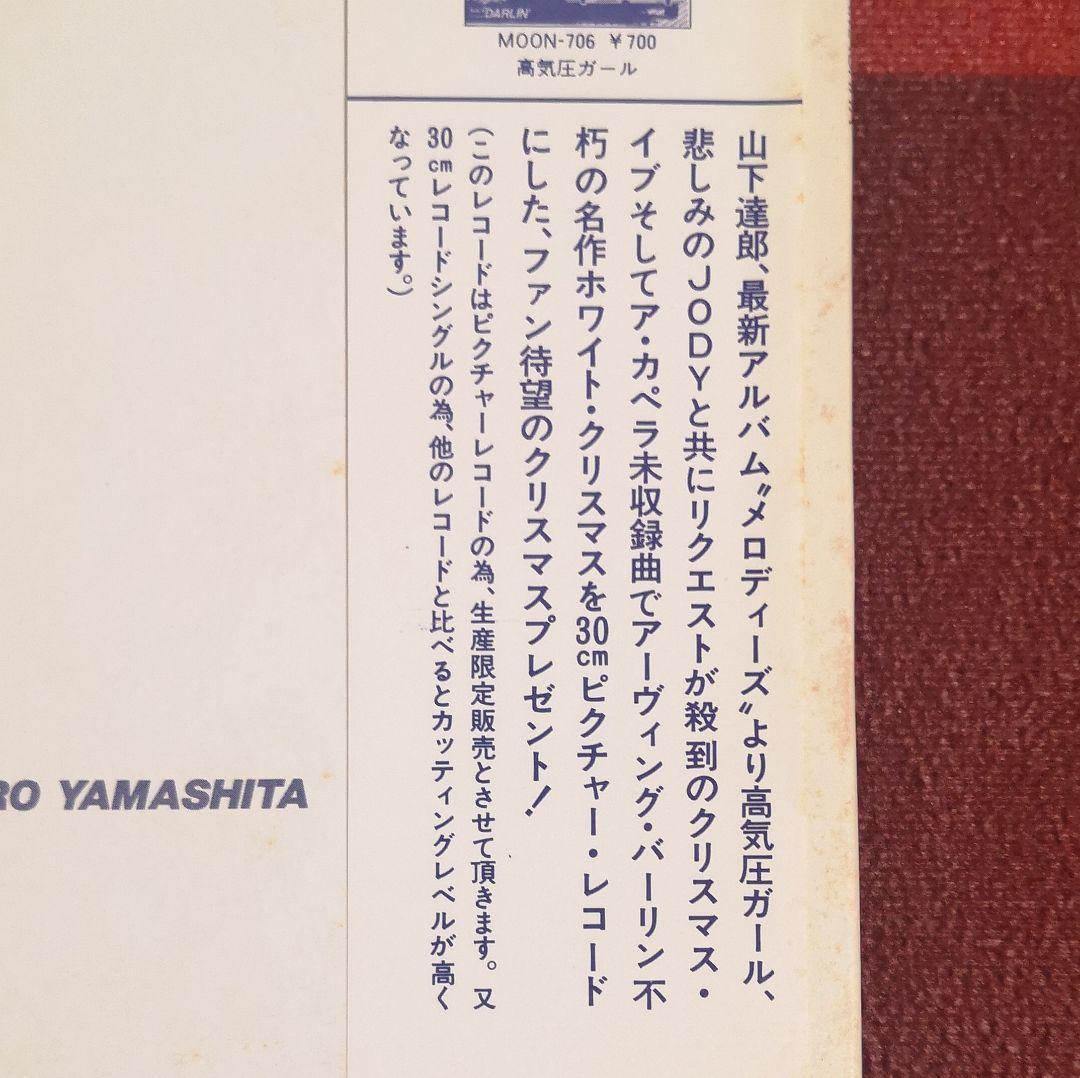 DARLIN'
MOON-706 ¥700
高気圧ガール
山下達郎、最新アルバム〝メロディーズ〟より高気圧ガール、
悲しみのJODYと共にリクエストが殺到のクリスマス・
イブそしてア・カペラ未収録曲でアーヴィング・バーリン不
朽の名作ホワイト・クリスマスを30cmピクチャー・レコード
にした、ファン待望のクリスマスプレゼント!
(このレコードはピクチャーレコードの為、生産限定販売とさせて頂きます。又
30cmレコードシングルの為、他のレコードと比べるとカッティングレベルが高く
なっています。)
RO YAMASHITA